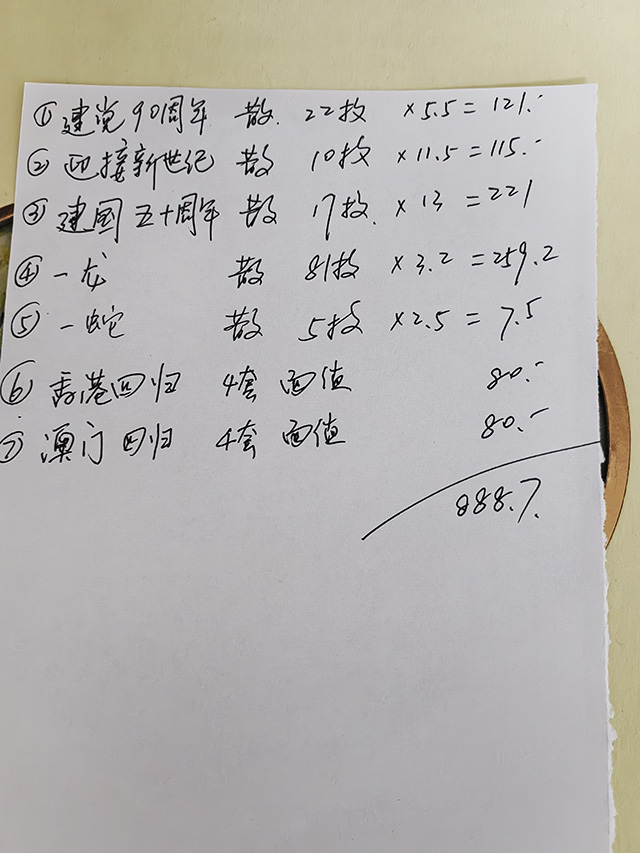 ① 建党90周年 散. 22枚 ×5.5=121.-
② 迎接新世纪 散 10枚 ×11.5=115.-
③ 建国五十周年 散 17枚. ×13=221
④ 一龙 散 81枚 ×3.2=259.2
⑤ 一蛇 散 5枚 ×2.5=7.5
⑥ 香港回归 4套 面值 80.-
⑦ 澳门回归 4套 面值 80.-
888.7.